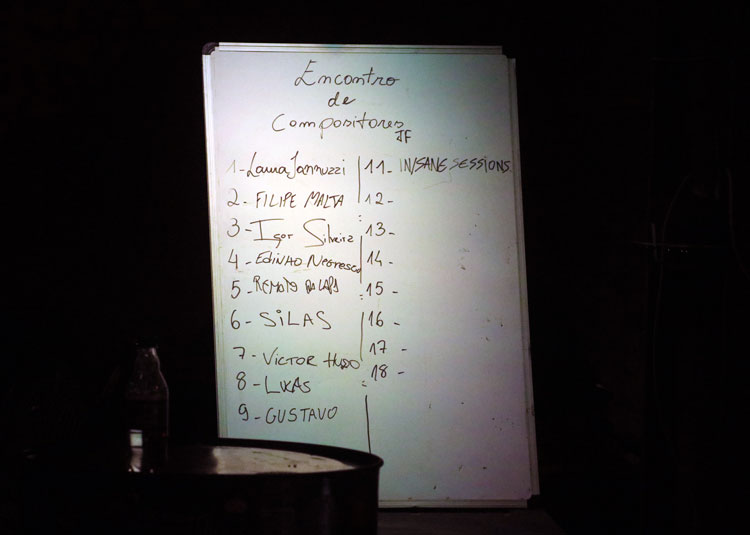 Encontro
de
Compositores
JF
1-Laura Jannuzzi
2-FILIPE MALTA
3-Igor Silveira
4-EDINHO Negresco
5-RENATO DA LAPA
6-SiLAS
7-VICTOR HUGO
8-LUKAS
9-GUSTAVO
11-IN/SANE SESSIONS
12-
13-
14-
15-
16-
17-
18-